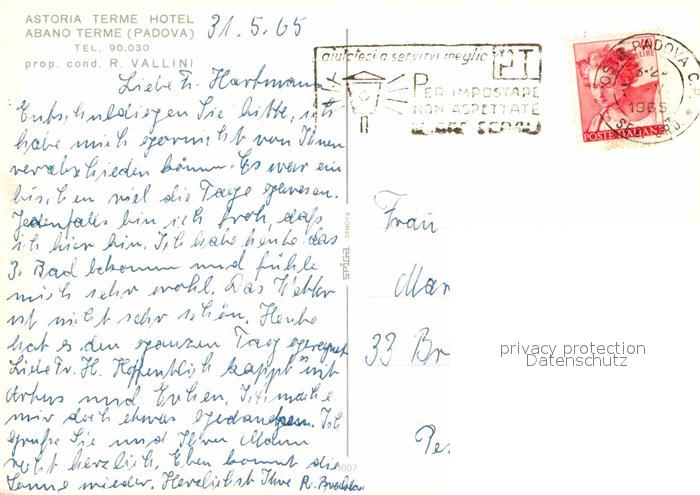 ASTORIA TERME HOTEL
ABANO TERME (PADOVA)
TEL. 90,030
prop. cond. R. VALLINI
31.5.65
Liebe Fr. Hartmann!
Entschuldigen Sie bitte, ich
habe mich garnicht von Ihnen
verabschieden können. Es war ein
bischen viel die Tage gewesen.
Jedenfalls bin ich froh, daß
ich hier bin. Ich habe heute das
3. Bad bekommen und fühle
mich sehr wohl. Das Wetter
ist nicht sehr schön. Heute
hat es den ganzen Tag geregnet
Liebe Fr. H. Hoffentlich kappt mit
und Ich mache
mir doch etwas Gedanken. Ich
grüße Sie und Ihren Mann
recht herzlich. Eben kommt die
Sonne wieder. Herzlichst Ihre R.
aiutateci a servirvi meglio
PT
PER IMPOSTARE
NON ASPETTATE
PADOVA
1965
LIRE
POSTE ITALIANE
SPIGA GENOVA
Frau
Mar
33 Br
Pe
privacy protection
Datenschutz